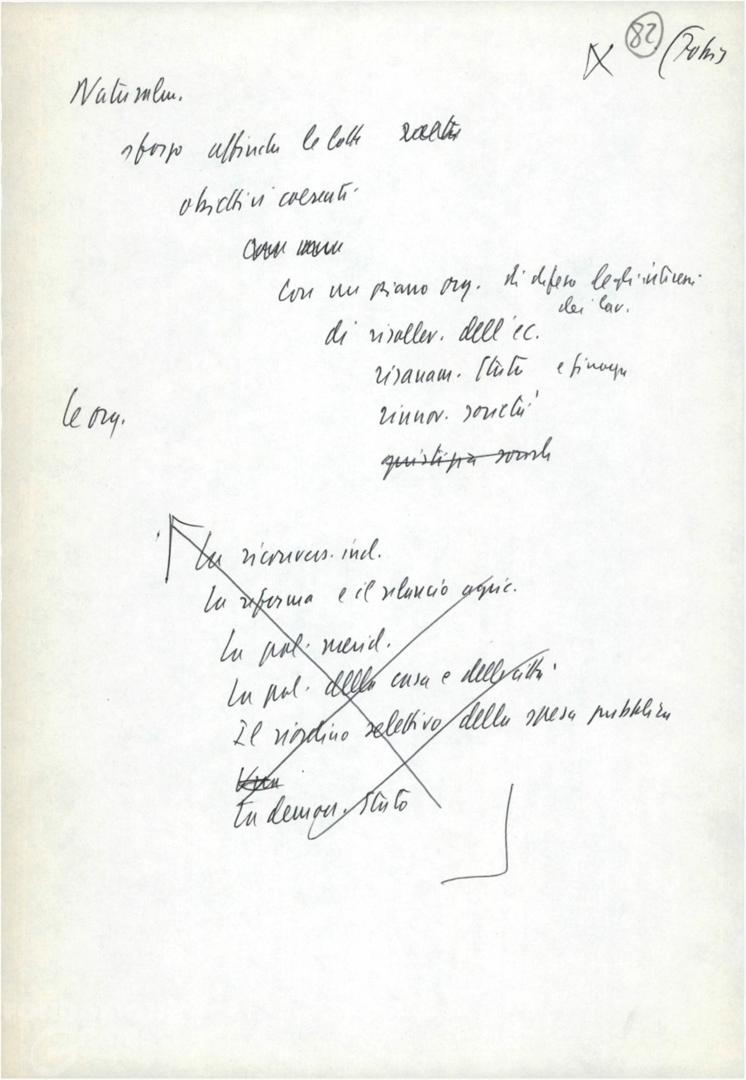 82
Naturalm.
sforzo affinché le lotte
obiettivi coerenti
con un piano org. di difesa degli interessi
dei lav.
di risollev. dell'ec.
risanam. Stato e finanza
rinnov. società
le org.
La riconvers. ind.
La riforma e il rilancio agric.
La pol. merid.
La pol. della casa e delle città
Il riordino selettivo della spesa pubblica
La democr. Stato